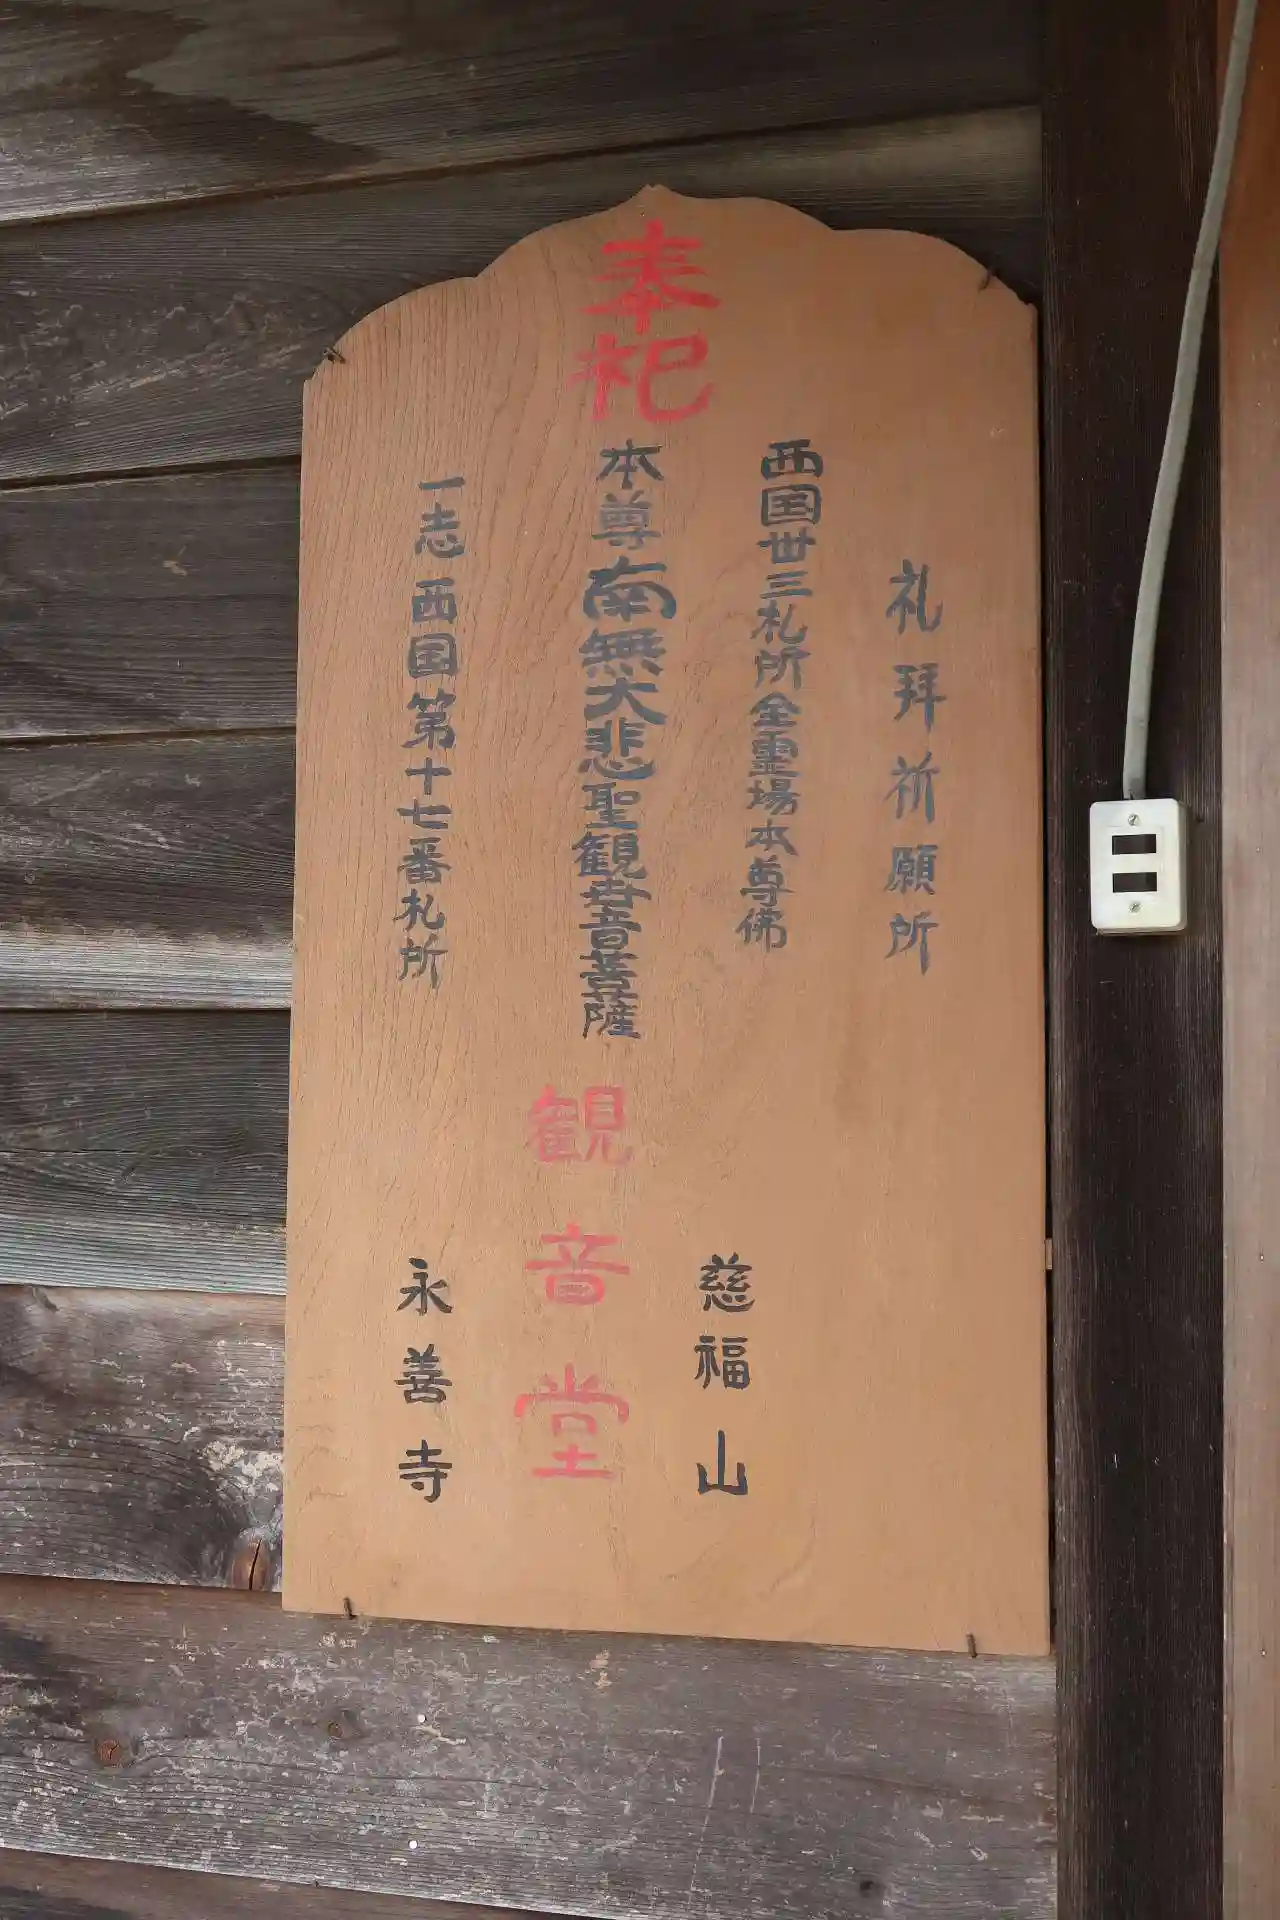 奉祀
礼拝祈願所
西国丗三札所全霊場本尊佛
本尊南無大悲聖観世音菩薩
一志西国第十七番札所
慈福山
観音堂
永善寺